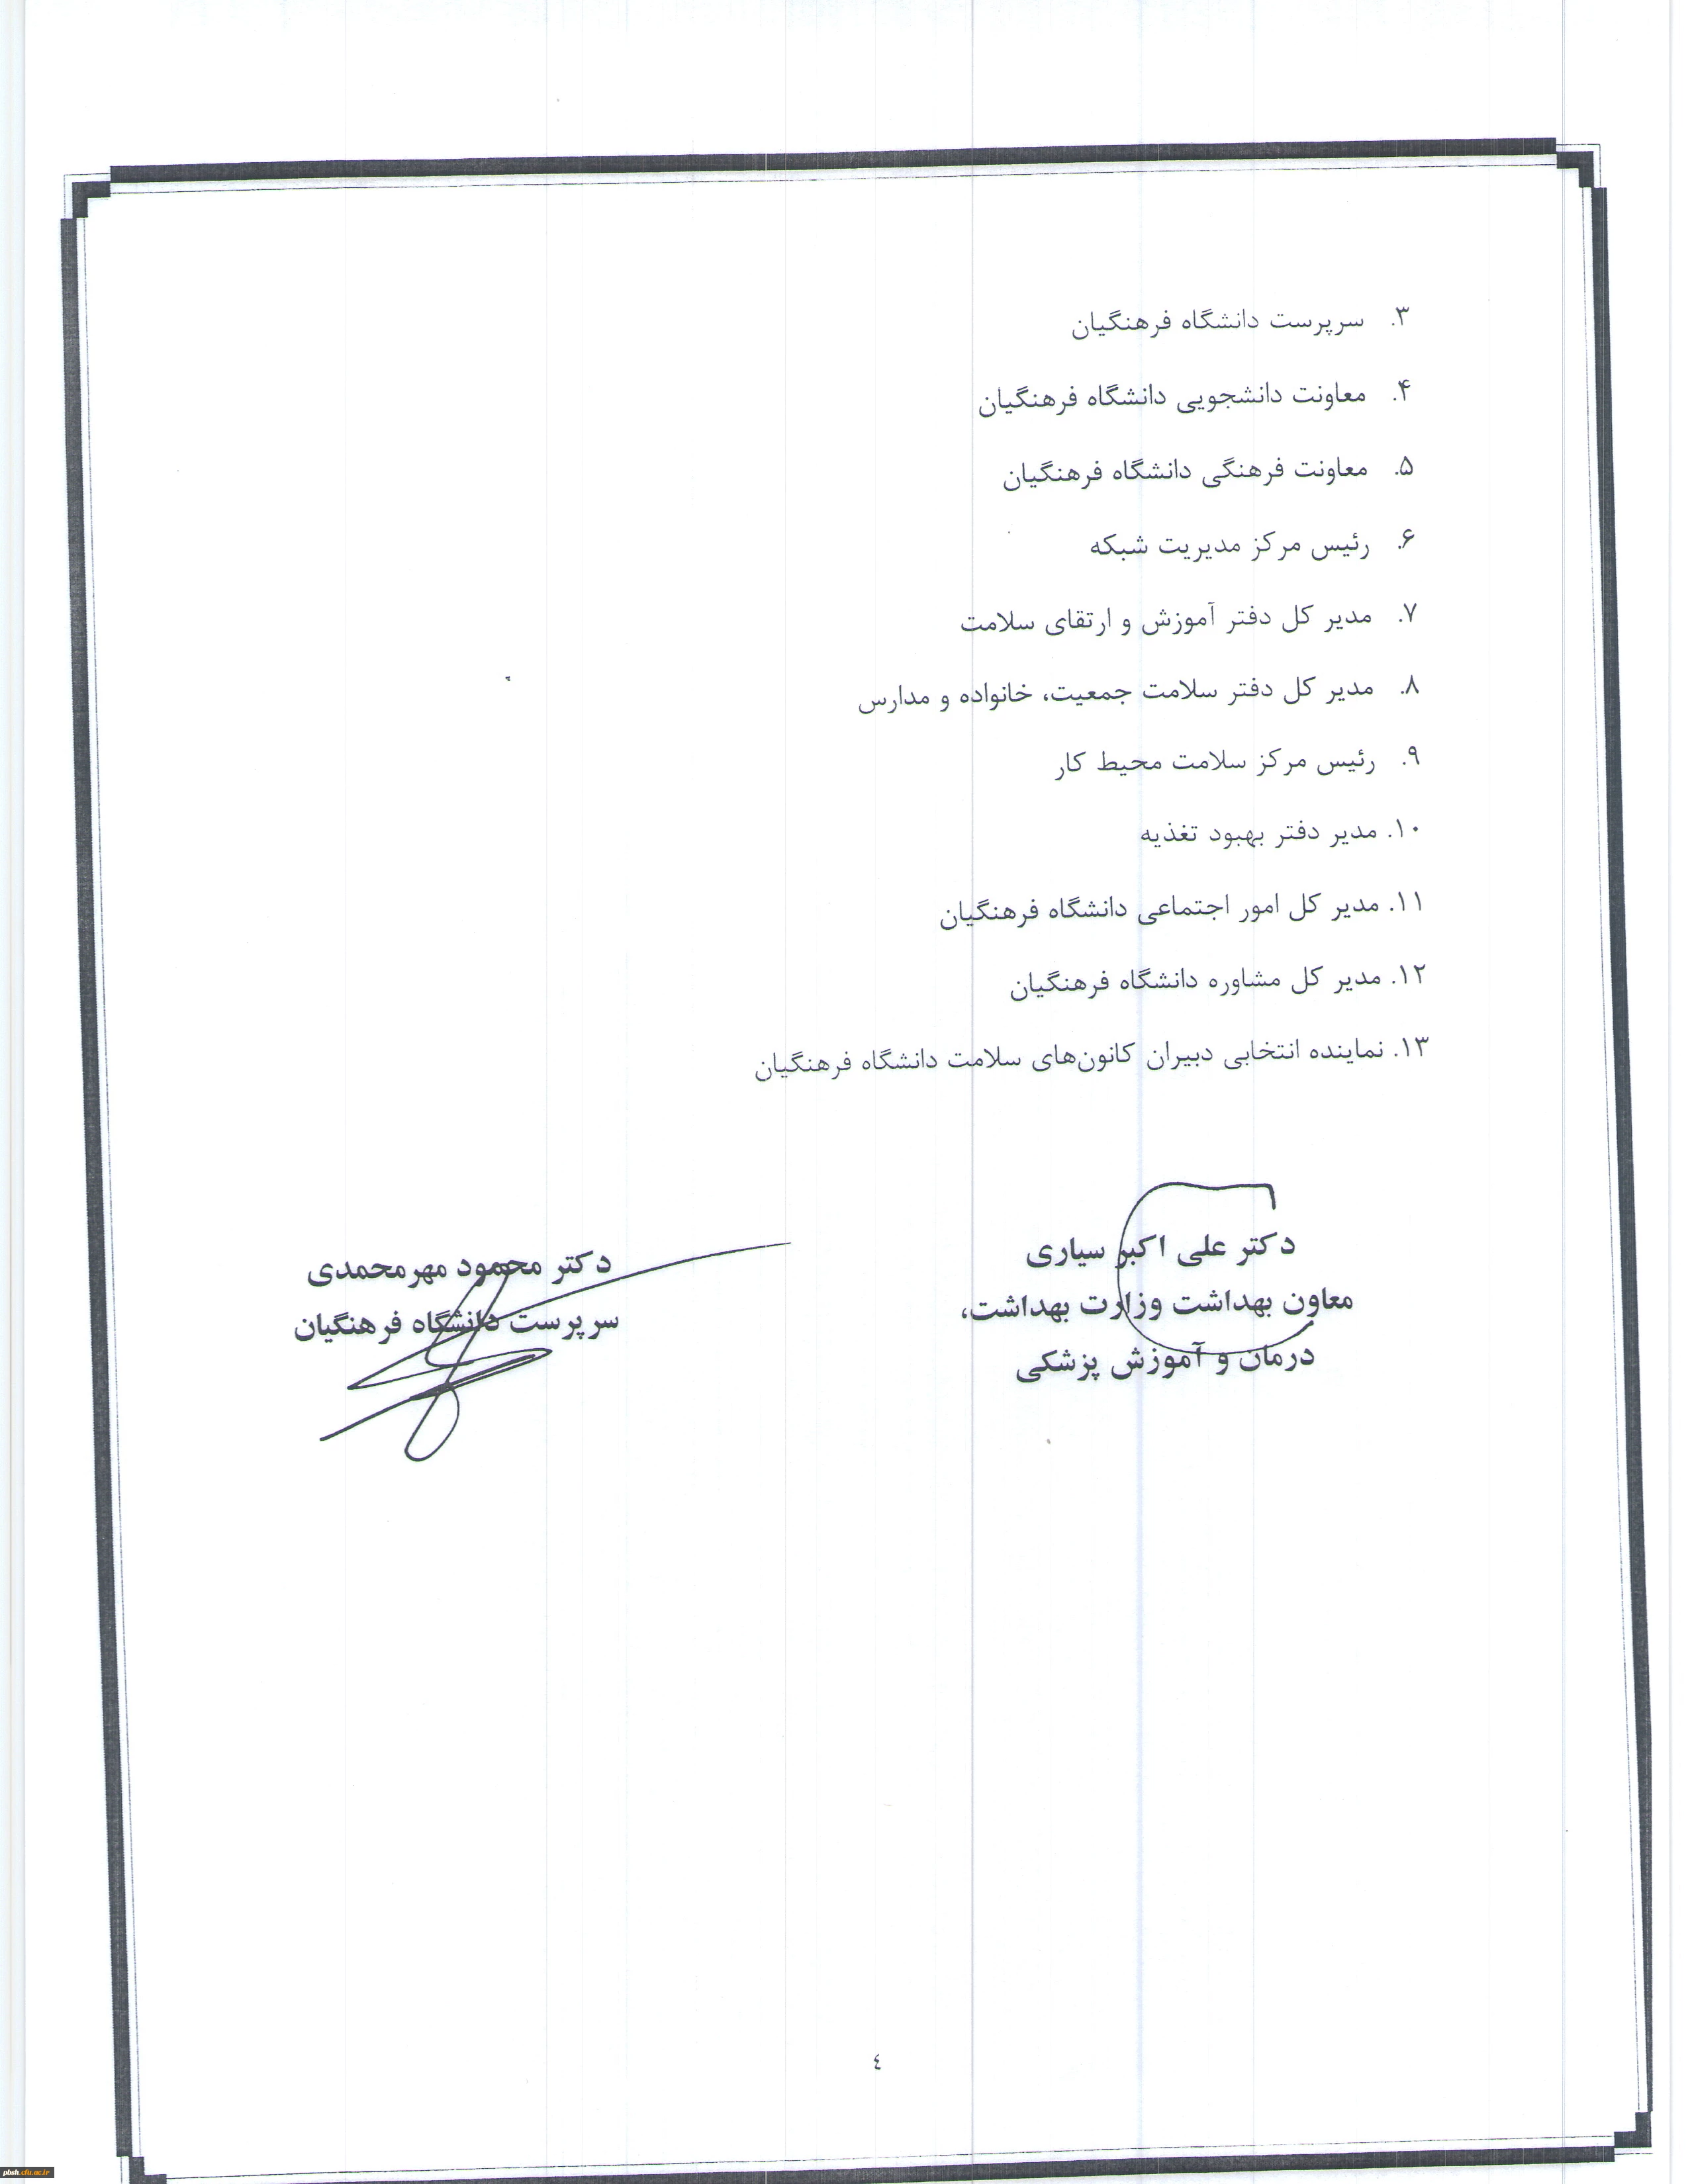 ۳. سرپرست دانشگاه فرهنگیان
۴. معاونت دانشجویی دانشگاه فرهنگیان
۵. معاونت فرهنگی دانشگاه فرهنگیان
۶. رئیس مرکز مدیریت شبکه
۷. مدیر کل دفتر آموزش و ارتقای سلامت
۸. مدیر کل دفتر سلامت جمعیت، خانواده و مدارس
۹. رئیس مرکز سلامت محیط کار
۱۰. مدیر دفتر بهبود تغذیه
۱۱. مدیر کل امور اجتماعی دانشگاه فرهنگیان
۱۲. مدیر کل مشاوره دانشگاه فرهنگیان
۱۳. نماینده انتخابی دبیران کانون‌های سلامت دانشگاه فرهنگیان
دکتر علی اکبر سیاری
معاون بهداشت وزارت بهداشت،
درمان و آموزش پزشکی
دکتر محمود مهرمحمدی
سرپرست دانشگاه فرهنگیان
٤
pbsh.cfu.ac.ir